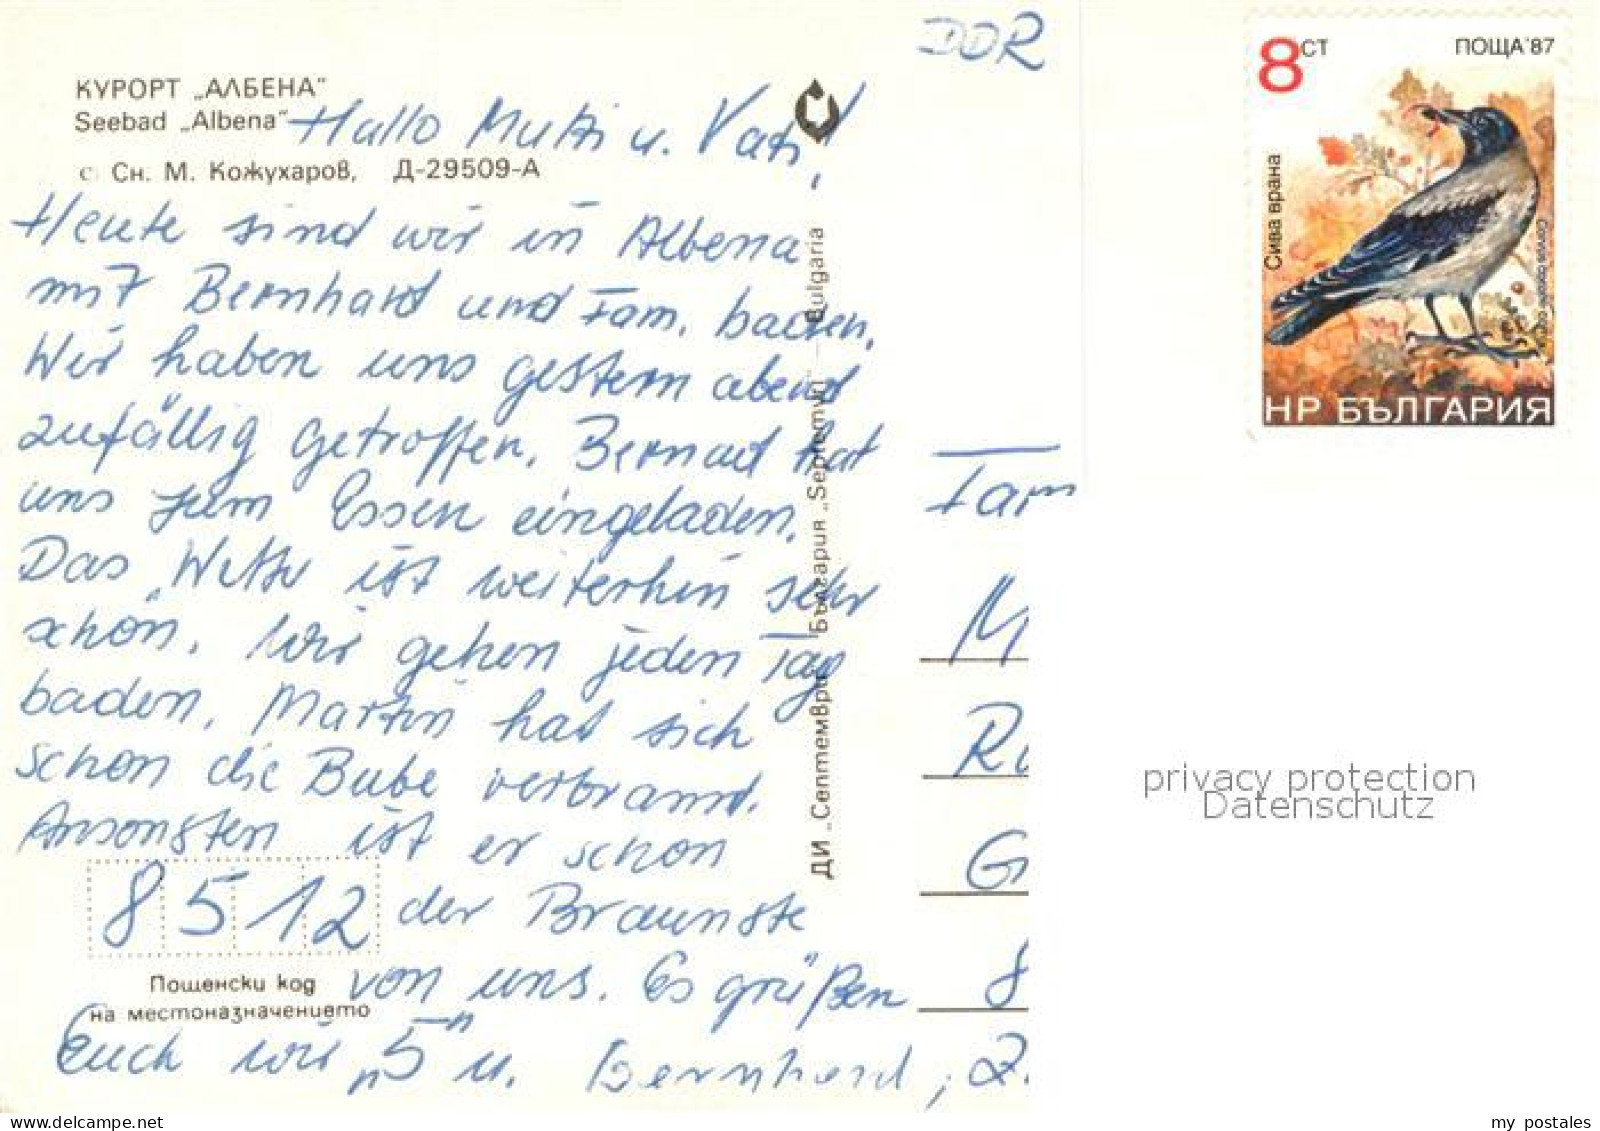 DDR
КУРОРТ „АЛБЕНА“
Seebad „Albena“
© Сн. М. Кожухаров, Д-29509-А
Hallo Mutti u. Vati,
Heute sind wir in Albena
mit Bernhard und Fam. baden.
Wir haben uns gestern abend
zufällig getroffen. Bernard hat
uns zum Essen eingeladen.
Das Wetter ist weiterhin sehr
schön. Wir gehen jeden Tag
baden. Martin hat sich
schon die Bube verbrannt.
Ansonsten ist er schon
der Braunste
von uns. Es grüßen
Euch wir „5“ u. Bernhard,
8512
Пощенски код
на местоназначението
ДИ „Септември“ България „Septemvri“ Bulgaria
Fam
M
Ru
G
8
Z.
8 СТ
ПОЩА'87
Сива врана
НР БЪЛГАРИЯ
privacy protection
Datenschutz
my postales